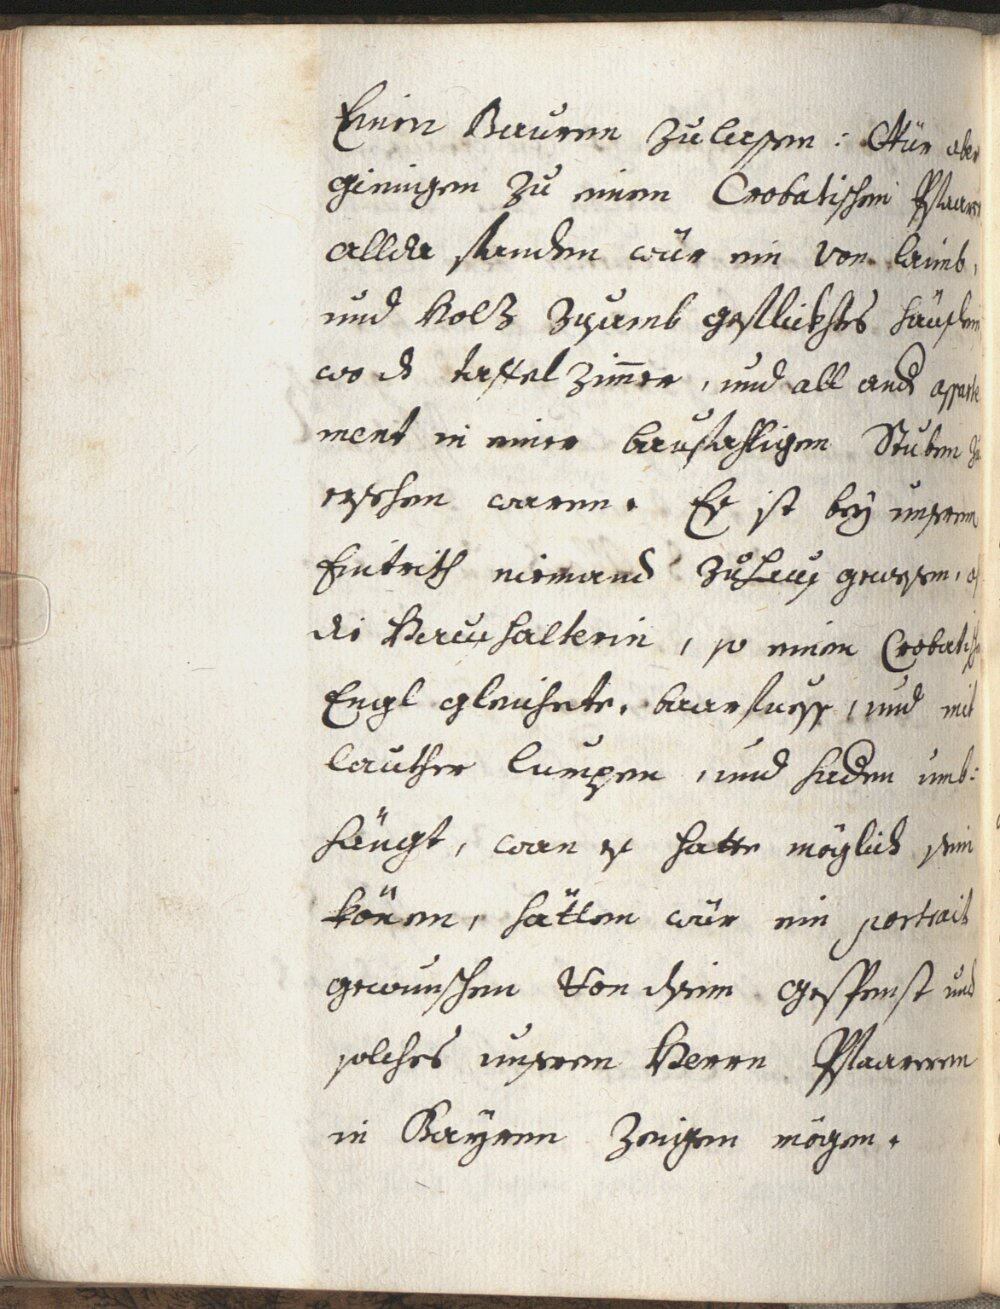 Einen Bauren zulassen: Wür aber
gieningen zu einem Crobatischen Pfaarer
allda funden wür ein von laimb,
und Holz zusamb geflickhtes häuslein
wo d taffel Zimer, und all and apparte
ment in einer baufahligen Stuben zu
ersehen waren. Es ist bey unserem
Eintrith niemand zu Haus gewesen, als
die Haushalterin, so einem Crobatischen
Engl gleichete, baarfuess, und mit
lauther lumpen, und hadern umb:
hängt, wan es hatte möglich sein
könen, hätten wür ein portrait
gewunschen Von disem gespenst und
solches unserem Herrn Pfaareren
in Bayren zeigen mögen.